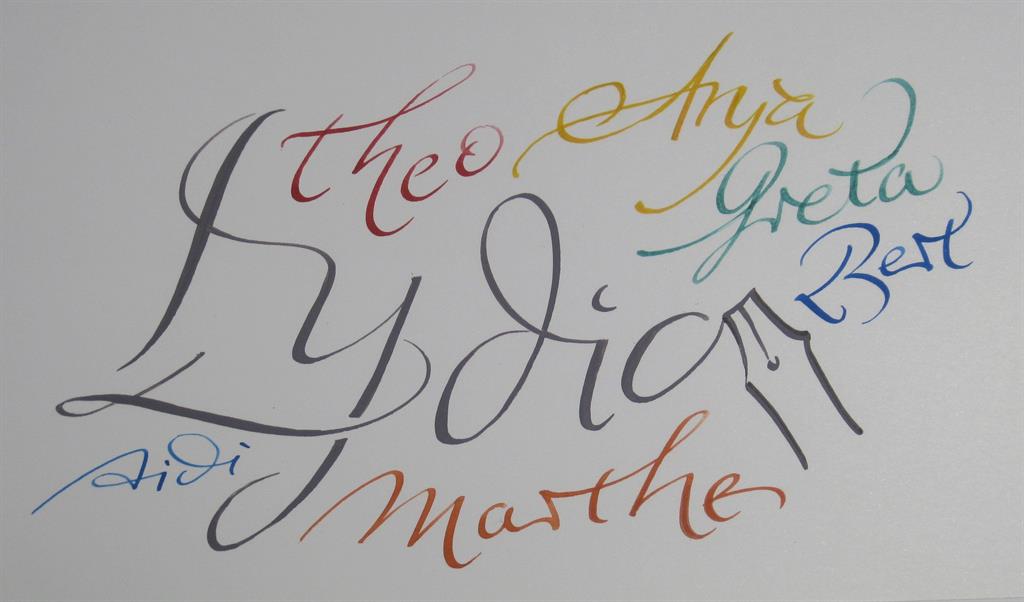 Theo
Anja
Greta
Bert
Lydia
Aidi
Marthe